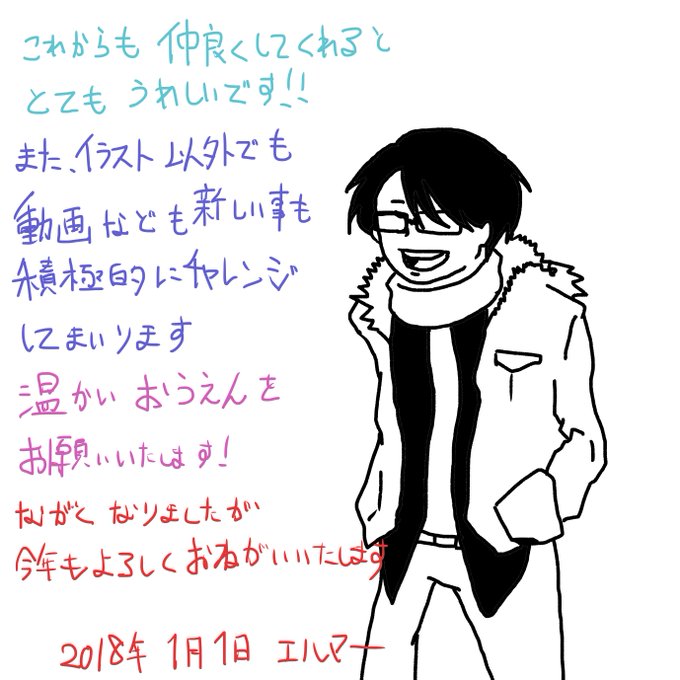 これからも 仲良くしてくれると
とても うれしいです!!
また、イラスト 以外でも
動画なども 新しい事も
積極的にチャレンジ
してまいります
温かい おうえんを
お願いいたします!
ながく なりましたが
今年もよろしく おねがいいたします
2018年 1月1日 エルマー